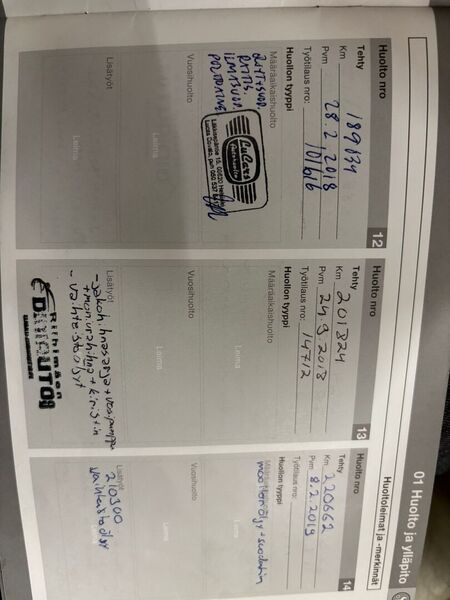 01 Huolto ja ylläpito
Huoltoleimat ja -merkinnät
Huolto nro 12
Tehty
Km 189134
Pvm 28.2.2018
Työtilaus nro: 101616
Huollon tyyppi
Määräaikaishuolto
Leima
ÖLJYTSUOD.
ILMATSUOD.
Vuosihuolto
Leima
Lisätyöt
Leima
CuCars
Autohuolto
Huolto nro 13
Tehty
Km 201324
Pvm 24.9.2018
Työtilaus nro: 14712
Huollon tyyppi
Määräaikaishuolto
Leima
Vuosihuolto
Leima
Lisätyöt
- jakohihnasarja + vesipumppu
+ moniurahihna + kiristin
- vaihteistoöljyt
Riihimäen
DIANAUTO
Huolto nro 14
Tehty
Km 220662
Pvm 8.2.2019
Työtilaus nro:
Huollon tyyppi
Määräaikaishuolto
moottoriöljy + suodatin
Leima
Vuosihuolto
Leima
Lisätyöt
210300
vaihteistoöljy